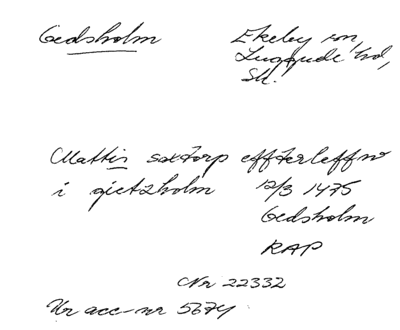 Gedsholm Ekeby sn,
Luggude hd,
Sk.
Mattis saxtorp effterleffw
i gietzholm 12/3 1475
Gedsholm
RAP
Nr 22332
Ur acc-nr 5674